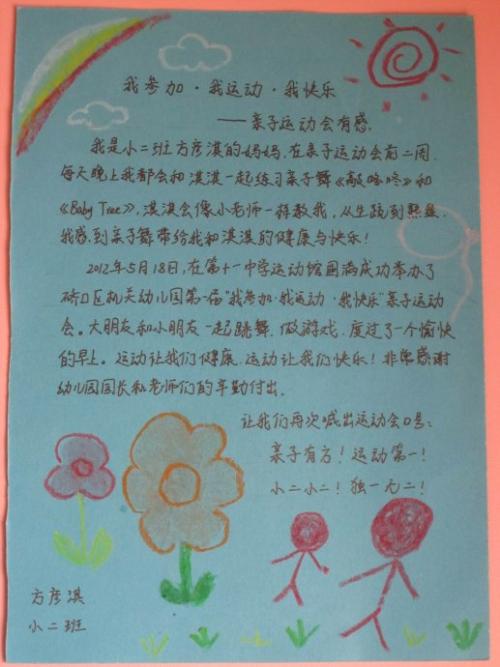 我参加·我运动·我快乐
——亲子运动会有感
我是小二班方彦淇的妈妈,在亲子运动会前二周,
每天晚上我都会和淇淇一起练习亲子舞《敲咚咚》和
《Baby Tree》,淇淇会像小老师一样教我,从生疏到熟练,
我感到亲子舞带给我和淇淇的健康与快乐!
2012年5月18日,在第十一中学运动馆圆满成功举办了
硚口区机关幼儿园第一届"我参加·我运动·我快乐"亲子运动
会。大朋友和小朋友一起跳舞、做游戏、度过了一个愉快
的早上。运动让我们健康,运动让我们快乐!非常感谢
幼儿园园长和老师们的辛勤付出。
让我们再次喊出运动会口号:
亲子有方!运动第一!
小二小二!独一无二!
方彦淇
小二班